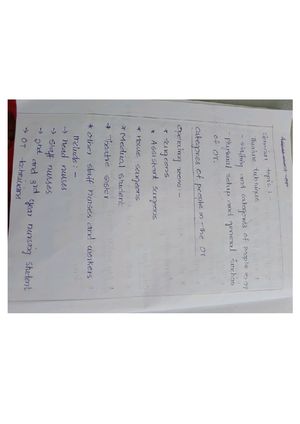 Seminar topic :
Theatre technique
- staffing and categories of people in OT
Physical setup and general function
of OT.
categories of people in the OT
Operating room :-
* Surgeons
* Assistant surgeons
* House surgeons
* Medical student
* Theatre sister
* Other staff nurses and workers
Include :-
→ Head nurses
→ staff nurses
→ 2nd and 3rd year nursing student
→ OT technicians